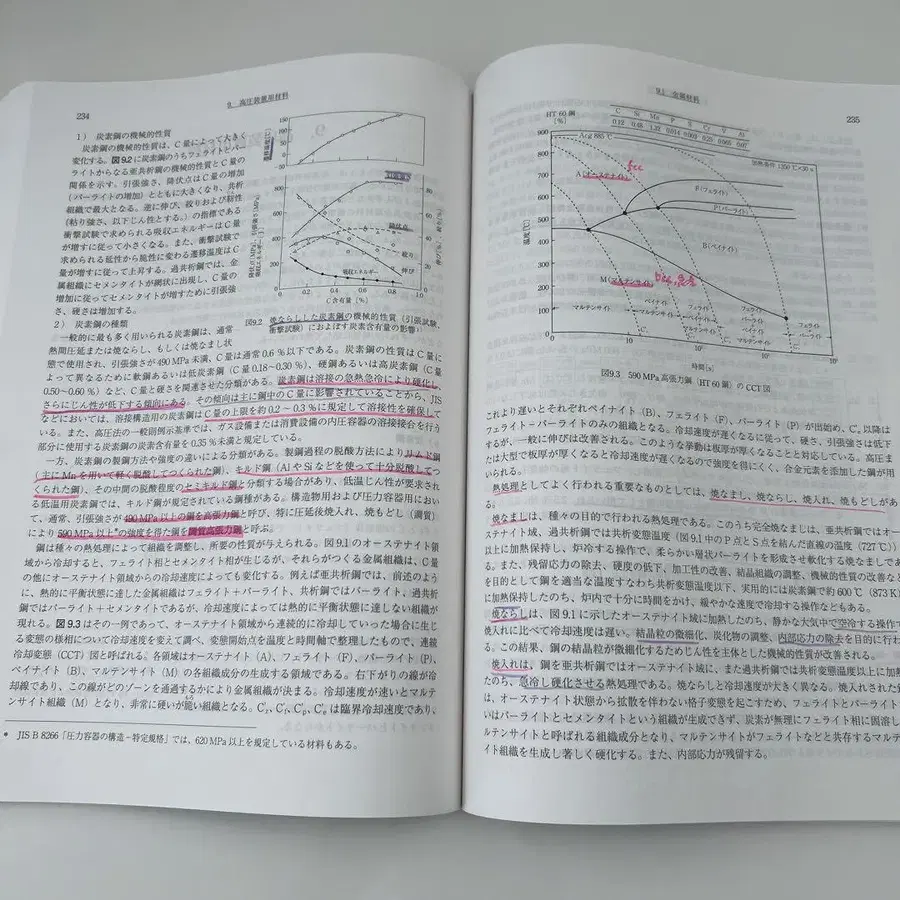 234
9. 高圧装置用材料
1） 炭素鋼の機械的性質
炭素鋼の機械的性質は、C量によって大きく
変化する。図9.2に炭素鋼のうちフェライトとパー
ライトからなる亜共析鋼の機械的性質とC量の
関係を示す。引張強さ、降伏点はC量の増加
（パーライトの増加）とともに大きくなり、共析
組織で最大となる。逆に伸び、絞りおよび靭性
（粘り強さ、以下じん性とする。）の指標である
衝撃試験で求められる吸収エネルギーはC量
が増すに従って小さくなる。また、衝撃試験で
求められる延性から脆性に変わる遷移温度はC
量が増すに従って上昇する。過共析鋼では、金
属組織にセメンタイトが網状に出現し、C量の
増加に従ってセメンタイトが増すために引張強
さ、硬さは増加する。
2） 炭素鋼の種類
一般的に最も多く用いられる炭素鋼は、通常
遷移温度[℃]
150
100
50
0
-50
-100
800
700
600
500
400
300
200
100
0
80
60
40
20
0
降伏点
絞り
伸び
吸収エネルギー
0.2 0.4 0.6 0.8 1.0
C含有量〔%〕
図9.2 焼ならしした炭素鋼の機械的性質（引張試験、
衝撃試験）におよぼす炭素含有量の影響
熱間圧延または焼ならし、もしくは焼なまし状
態で使用され、引張強さが490 MPa未満、C量は通常0.6 %以下である。炭素鋼の性質はC量に
よって異なるために軟鋼あるいは低炭素鋼（C量0.18～0.30 %）、硬鋼あるいは高炭素鋼（C量
0.50～0.60 %）など、C量と硬さを関連させた分類がある。炭素鋼は溶接の急熱急冷により硬化し、
さらにじん性が低下する傾向にある。その傾向は主に鋼中のC量に影響されていることから、JIS
などにおいては、溶接構造用の炭素鋼はC量の上限を約0.2～0.3 %に規定して溶接性を確保して
いる。また、高圧法の一般則例示基準では、ガス設備または消費設備の内圧容器の溶接接合を行う
部分に使用する炭素鋼の炭素含有量を0.35 %未満と規定している。
一方、炭素鋼の製鋼方法や強度の違いによる分類がある。製鋼過程の脱酸方法によりリムド鋼
（主にMnを用いて軽く脱酸してつくられた鋼）、キルド鋼（AlやSiなどを使って十分脱酸してつ
くられた鋼）、その中間の脱酸程度のセミキルド鋼と分類する場合があり、低温じん性が要求され
る低温用炭素鋼では、キルド鋼が規定されている鋼種がある。構造物用および圧力容器用におい
て、通常、引張強さが490 MPa以上の鋼を高張力鋼と呼び、特に圧延後焼入れ、焼もどし（調質）
により590 MPa以上*の強度を得た鋼を調質高張力鋼と呼ぶ。
鋼は種々の熱処理によって組織を調整し、所要の性質が与えられる。図9.1のオーステナイト領
域から冷却すると、フェライト相とセメンタイト相が生じるが、それらがつくる金属組織は、C量
の他にオーステナイト領域からの冷却速度によっても変化する。例えば亜共析鋼では、前述のよう
に、熱的に平衡状態に達した金属組織はフェライト＋パーライト、共析鋼ではパーライト、過共析
鋼ではパーライト＋セメンタイトであるが、冷却速度によっては熱的に平衡状態に達しない組織が
現れる。図9.3はその一例であって、オーステナイト領域から連続的に冷却していった場合に生じ
る変態の様相について冷却速度を変えて調べ、変態開始点を温度と時間軸で整理したもので、連続
冷却変態（CCT）図と呼ばれる。各領域はオーステナイト（A）、フェライト（F）、パーライト（P）、
ベイナイト（B）、マルテンサイト（M）の各組織成分の生成する領域である。右下がりの線が冷
却線であり、この線がどのゾーンを通過するかにより金属組織が決まる。冷却速度が速いとマルテ
ンサイト組織（M）となり、非常に硬いが脆い組織となる。C′z、C′f、C′p、C′eは臨界冷却速度であり、
* JIS B 8266「圧力容器の構造－特定規格」では、620 MPa以上を規定している材料もある。
9.1 金属材料
235
HT 60鋼
[%]
C Si Mn P S Cr V Al
0.12 0.48 1.32 0.014 0.009 0.25 0.065 0.07
900
800
700
600
500
400
300
200
100
0
温度[℃]
Ac3 885℃
加熱条件 1350℃×30 s
fcc
A(オーステナイト)
F(フェライト)
P(パーライト)
B(ベイナイト)
M(マルテンサイト)
マルテンサイト
ベイナイト
マルテンサイト
フェライト
ベイナイト
マルテンサイト
フェライト
パーライト
ベイナイト
マルテンサイト
フェライト
+
パーライト
1
10
時間[s]
図9.3 590 MPa高張力鋼（HT 60鋼）のCCT図
これより遅いとそれぞれベイナイト（B）、フェライト（F）、パーライト（P）が出始め、C′e以降は
フェライト－パーライトのみの組織となる。冷却速度が遅くなるに従って、硬さ、引張強さは低下
するが、一般に伸びは改善される。このような挙動は板厚が厚くなることと対応している。高圧ま
たは大型で板厚が厚くなると冷却速度が遅くなるので強度を得にくく、合金元素を添加した鋼が用
いられる。
熱処理としてよく行われる重要なものとしては、焼なまし、焼ならし、焼入れ、焼もどしがあ
る。
焼なましは、種々の目的で行われる熱処理である。このうち完全焼なましは、亜共析鋼ではオー
ステナイト域、過共析鋼では共析変態温度（図9.1中のP点とS点を結んだ直線の温度（727℃））
以上に加熱保持し、炉冷する操作で、柔らかい層状パーライトを形成させ軟化する焼なましであ
る。また、残留応力の除去、硬度の低下、加工性の改善、結晶組織の調整、機械的性質の改善など
を目的として鋼を適当な温度すなわち共析変態温度以下、実用的には炭素鋼で約600℃（873 K）
に加熱保持したのち、炉内で十分に時間をかけ、緩やかな速度で冷却する操作などもある。
焼ならしは、図9.1に示したオーステナイト域に加熱したのち、静かな大気中で空冷する操作で
焼入れに比べて冷却速度は遅い。結晶粒の微細化、炭化物の調整、内部応力の除去を目的に行わ
る。この結果、鋼の結晶粒が微細化するためじん性を主体とした機械的性質が改善される。
焼入れは、鋼を亜共析鋼ではオーステナイト域に、また過共析鋼では共析変態温度以上に加熱
たのち、急冷し硬化させる熱処理である。焼ならしと冷却速度が大きく異なる。焼入れされた鋼
は、オーステナイト状態から拡散を伴わない格子変態を起こすため、フェライトとパーライト
いはパーライトとセメンタイトという組織が生成できず、炭素が無理にフェライト相に固溶し
ルテンサイトと呼ばれる組織成分となり、マルテンサイトがフェライトなどと共存するマルテ
イト組織を生成し著しく硬化する。また、内部応力が残留する。